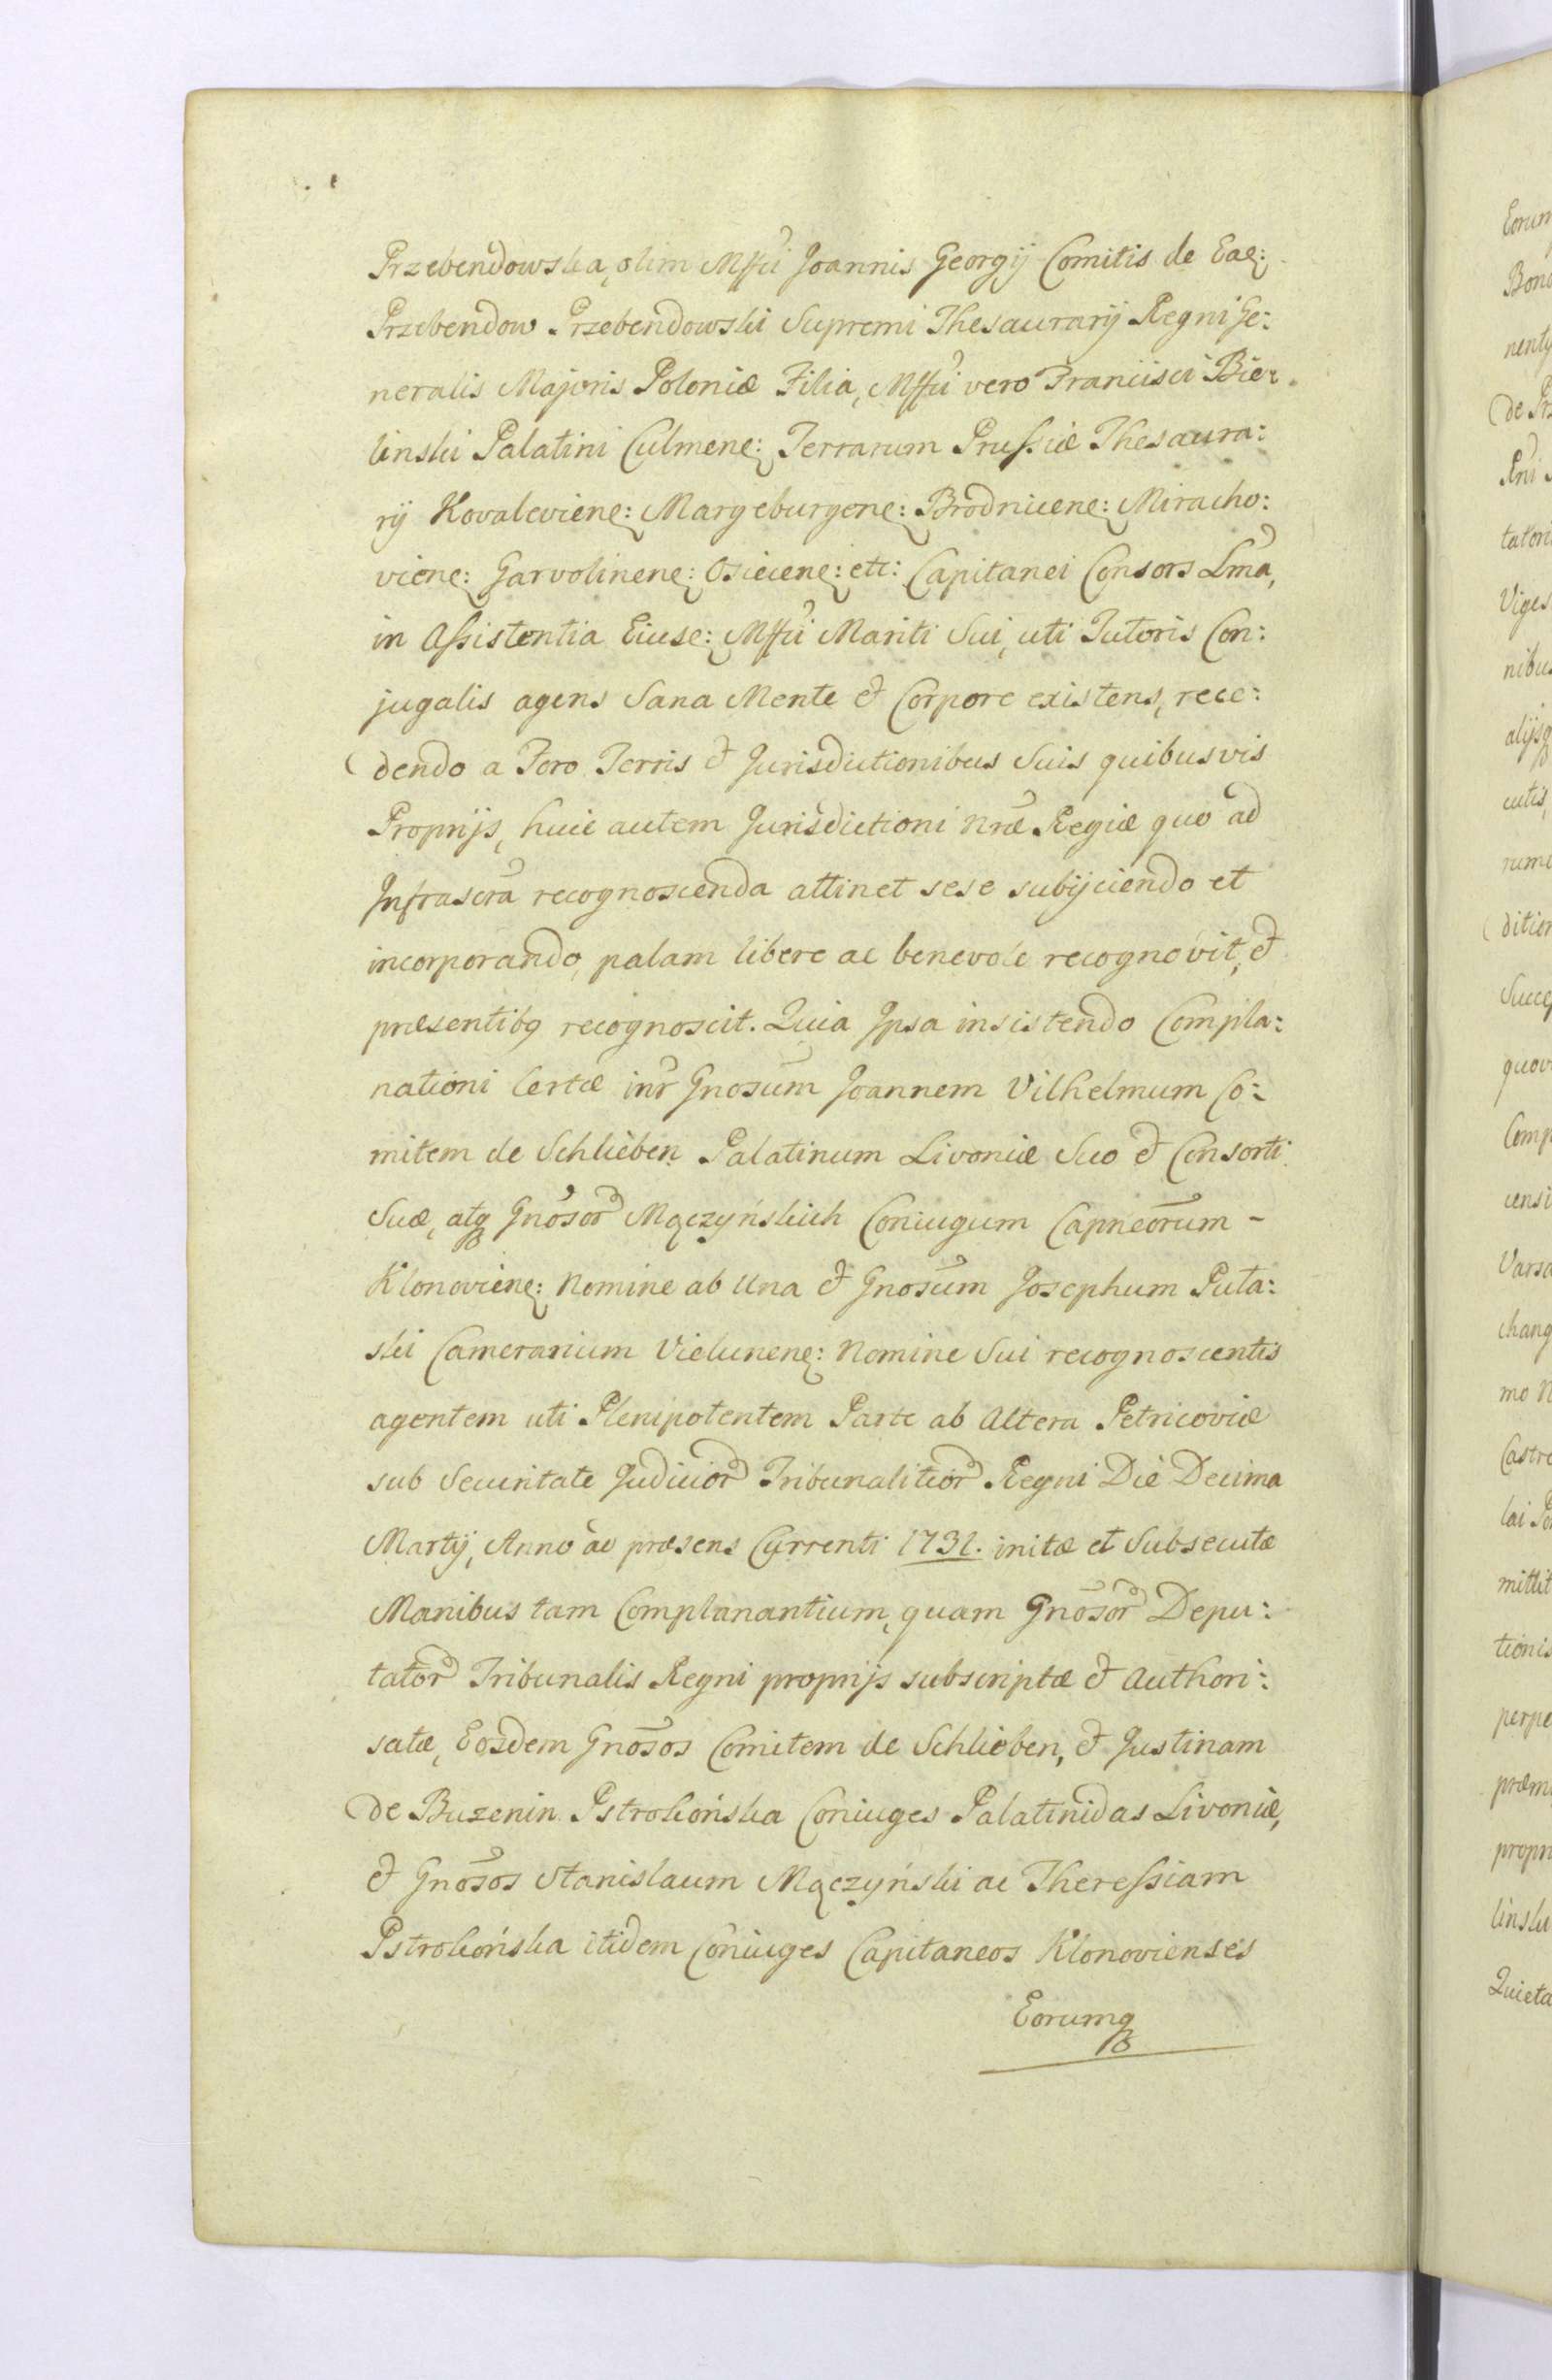 Przebendowska, olim Mffci Joannis Georgij Comitis de Eaę:
Przebendow Przebendowski Supremi Thesaurarij Regni Ge:
neralis Majoris Poloniæ Filia, Mffci vero Francisci Bie:
linski Palatini Culmenę: Terrarum Prussiæ Thesaura:
rij Kovalevienę: Margeburgenę: Brodnicenę: Miracho:
vienę: Garvolinenę: Osiecenę: etc: Capitanei Consors Lma,
in Assistentia Eiusę: Mffci Mariti Sui, uti Tutoris Con:
jugalis agens Sana Mente & Corpore existens, rece:
dendo a Foro Terris & Jurisdictionibus Suis quibusvis
Proprijs, huic autem Jurisdictioni nræ Regiæ quo ad
Infrascra recognoscenda attinet sese subijciendo et
incorporando, palam libere ac benevole recognovit, &
præsentibq recognoscit. Quia Ipsa insistendo Compla:
nationi Certæ inr Gnosum Joannem Vilhelmum Co:
mitem de Schlieben Palatinum Livoniæ Suo & Consorti
Suæ, atq Gnosor Mączyńskich Coniugum Capneorum -
Klonovienę: Nomine ab Una & Gnosum Josephum Puła:
ski Camerarium Vielunenę: Nomine Sui recognoscentis
agentem uti Plenipotentem Parte ab Altera Petricoviæ
sub Securitate Judicior Tribunalitior Regni Die Decima
Martij, Anno ad præsens Currenti 1731. initæ et Subsecutæ
Manibus tam Complanantium, quam Gnosor Depu:
tator Tribunalis Regni proprijs subscriptæ & Authori:
satæ, Eosdem Gnosos Comitem de Schlieben, & Justinam
de Buzenin Pstrokońska Coniuges Palatinidas Livoniæ,
& Gnosos Stanislaum Mączyński ac Theressiam
Pstrokońska itidem Coniuges Capitaneos Klonovienses
Eorumq